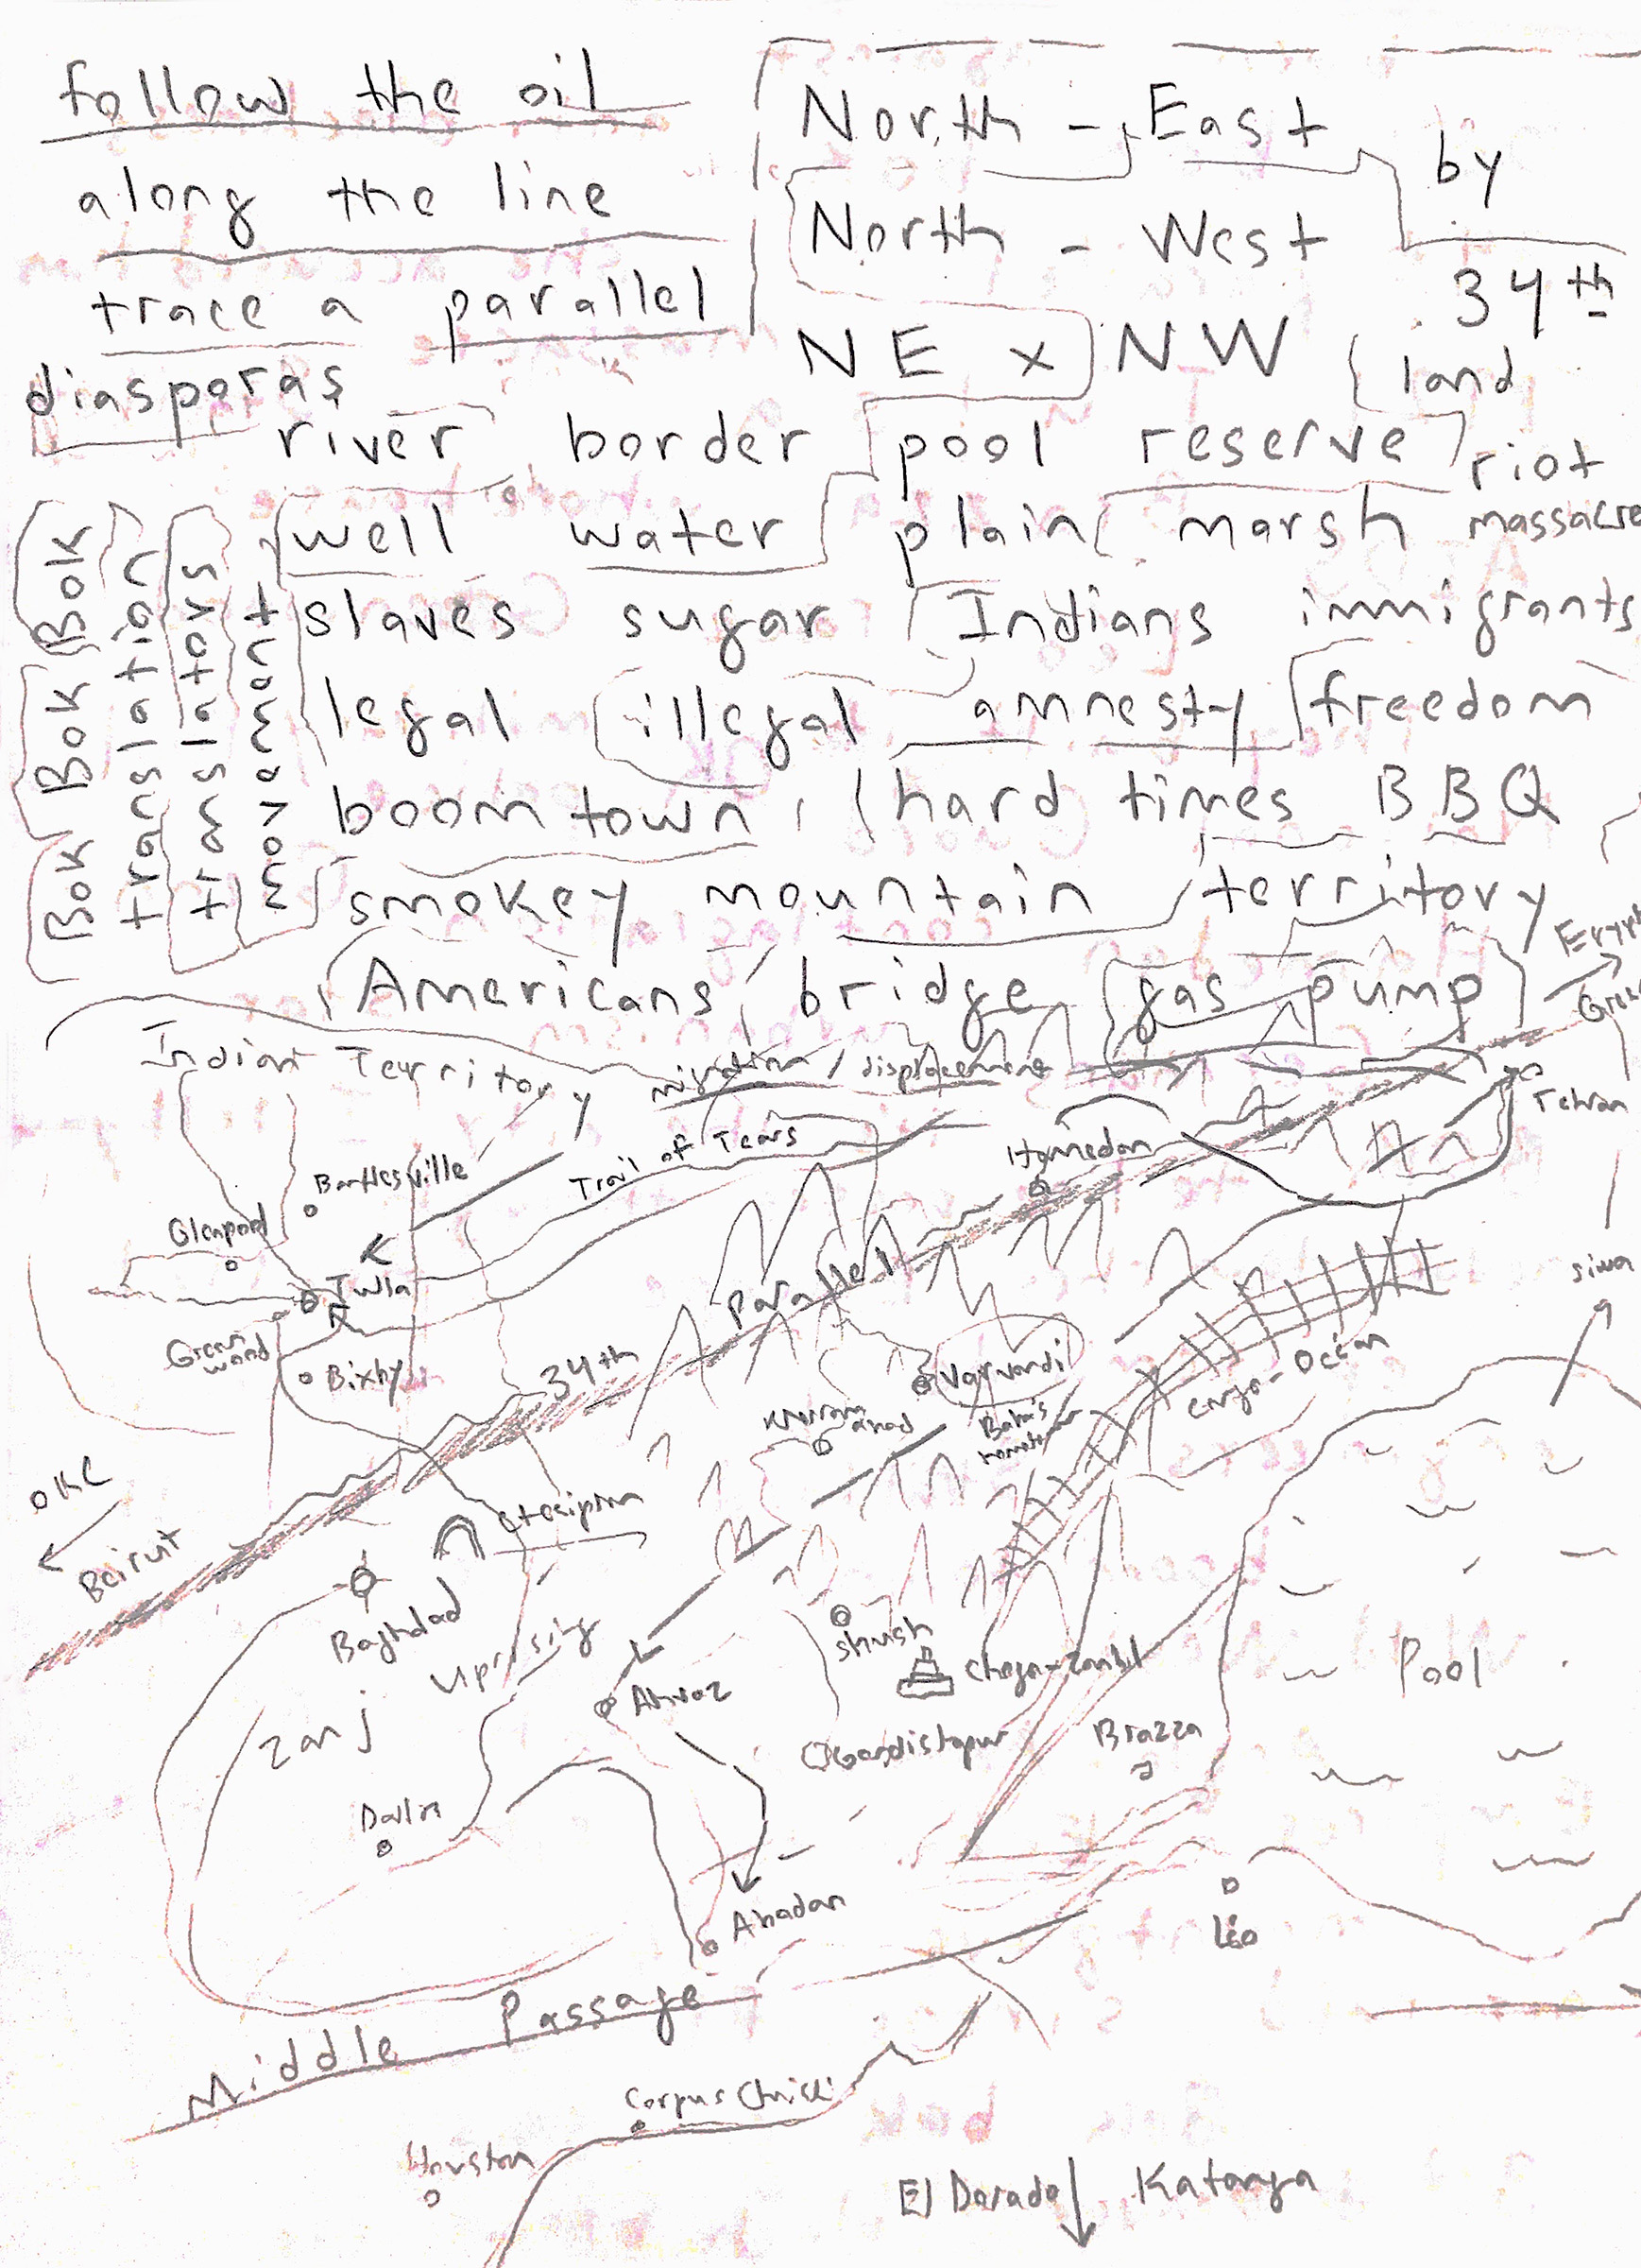 follow the oil
along the line
trace a parallel
diasporas
North - East by
North - West 34th
NE x NW land
river border pool reserve riot
well water plain marsh massacre
slaves sugar Indians immigrants
legal illegal amnesty freedom
boomtown hard times BBQ
smokey mountain territory
Americans bridge gas pump
Bok Bok Bok Bok
translation
translators
movement
Indian Territory
migration / displacement
Trail of Tears
Bartlesville
Glenpool
Tulsa
Greenwood
Bixby
Hamedan
Tehran
34th parallel
Varvardi
Baba's hometown
Khorramabad
Congo-Océan
siwa
OKC
Beirut
Ctesiphon
Baghdad
Zanj Uprising
Ahvaz
Shush
Choga-Zanbil
Gondishapur
Brazza
Pool
Abadan
Léo
Middle Passage
Corpus Christi
Houston
El Dorado Katanga